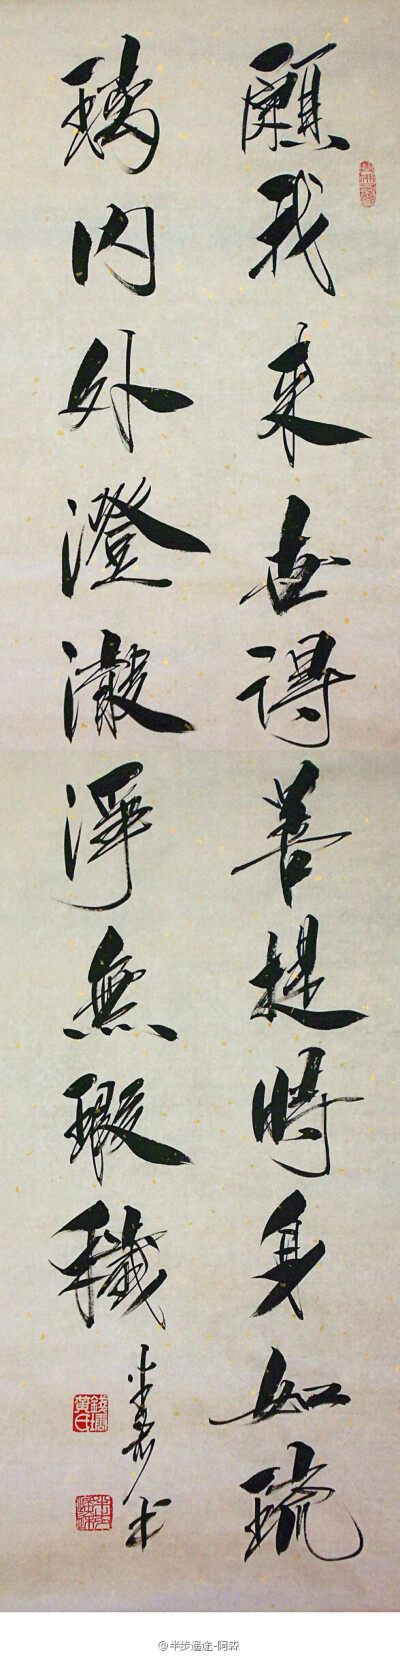 願我来世得菩提時身如琉
璃内外澄澈淨無瑕穢
@半步遥途-阿淼